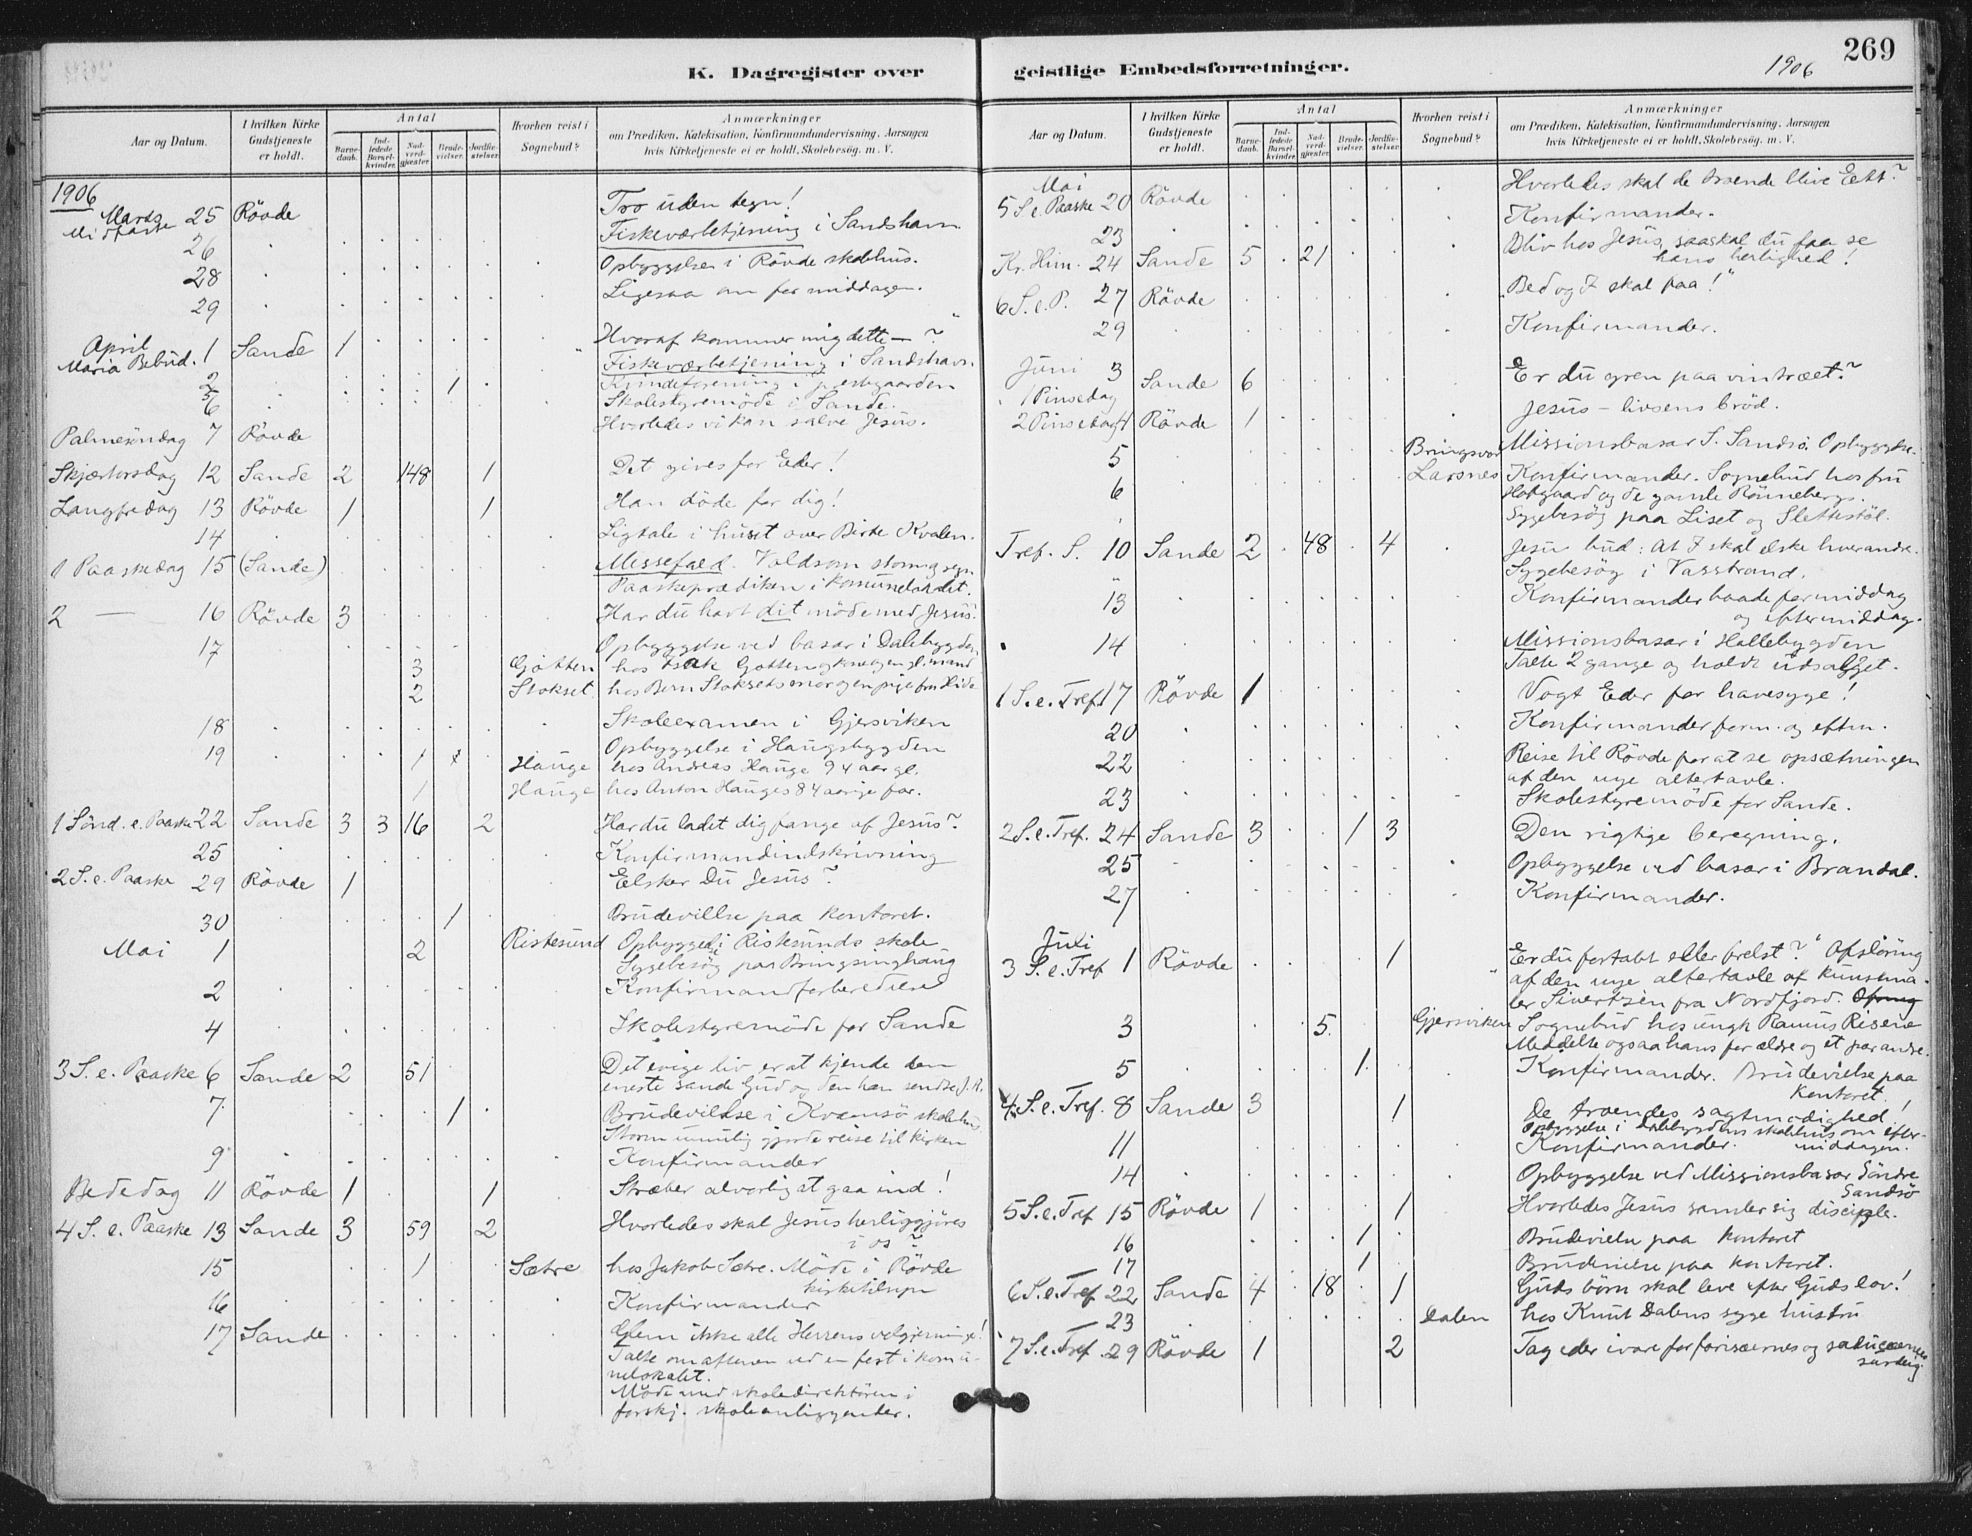 269
1906
K. Dagregister over geistlige Embedsforretninger.
Aar og Datum. I hvilken Kirke Gudstjeneste er holdt. Antal Barnedaab. Indledede Barselkvinder. Nadverdgjæster. Brudevielser. Jordfæstelser. Hvorhen reist i Sognebud? Anmærkninger om Prædiken, Katekisation, Konfirmandundervisning, Aarsagen hvis Kirketjeneste ei er holdt, Skolebesøg. m. V.
1906
Marts 25 Rövde Tro uden tegn!
Midfaste
26 Fiskeværbetjening i Sandshavn
28 Opbyggelse i Rövde skolehus.
29 Ligesaa om formiddagen.
April 1 Sande 1 Hvoraf kommer mig dette – ?
Maria Bebud. Fiskeværbetjening i Sandshavn.
2 1 Kvindeforening i prestgaarden
6 Skolestyremöde i Sande.
Palmesöndag 7 Rövde Hvorledes vi kan salve Jesus.
Skjærtorsdag 12 Sande 2 148 1 Det gives for Eder!
Langfredag 13 Rövde 1 1 Han döde for dig!
14 Ligtale i huset over Birte Kvalen.
1 Paaskedag 15 (Sande) Messefald. Voldsom storm og regn
Paaskeprædiken i komunelokalet.
2 — 16 Rövde 3 Har du havt dit möde med Jesus?
17 Opbyggelse ved basar i Dalebygden
3 Gjötten hos
2 Stokset hos Bern Stoksets
18 Skoleexamen i Gjersviken
19 Opbyggelse i Haugsbygden
1 Hauge hos Andreas Hauge 94 aar gl.
1 Hauge hos Anton Hauges 84 aarige far.
1 Sönd. e. Paaske 22 Sande 3 3 16 2 Har du ladet dig fange af Jesus?
25 Konfirmandindskrivning
2 S. e. Paaske 29 Rövde 1 Elsker Du Jesus?
30 1 Brudevillse paa kontoret.
Mai 1 2 Ristesund Opbyggel i Ristesunds skole
Sygebesög paa Bringsinghaug
2 Konfirmandforberedelse
4 Skolestyremöde for Sande
3 S. e. Paaske 6 Sande 2 51 Det evige liv er at kjende den
eneste sande Gud og den han sendte J. K.
7 1 Brudevillse i Kvamsö skolehus.
Storm umulig gjorde reise til kirken
9 Konfirmander
Bededag 11 Rövde 1 1 Stræber alvorlig at gaa ind!
4 S. e. Paaske 13 Sande 3 59 2 Hvorledes skal Jesus herliggjöres
i os?
15 1 Sætre hos Jakob Sætre. Möde i Rövde
kirketilsyn
16 Konfirmander
17 Sande Glem ikke alle Herrens velgjerninger!
Talte om aftenen ved en fest i komu-
nelokalet.
Möde med skoledirektören i
forskj. skoleanliggender.
Aar og Datum. I hvilken Kirke Gudstjeneste er holdt. Antal Barnedaab. Indledede Barselkvinder. Nadverdgjæster. Brudevielser. Jordfæstelser. Hvorhen reist i Sognebud? Anmærkninger om Prædiken, Katekisation, Konfirmandundervisning, Aarsagen hvis Kirketjeneste ei er holdt, Skolebesøg. m. V.
Mai
5 S. e. Paaske 20 Rövde Hvorledes skal de troende blive Eett?
23 Konfirmander.
Kr. Him. 24 Sande 5 21 Bliv hos Jesus, saa skal du faa se
hans herlighed!
6 S. e. P. 27 Rövde "Bed og I skal faa!"
29 Konfirmander.
Juni 3 Sande 6 Er du gren paa vintræet?
1 Pinsedag
2 Pinsedag 4 Rövde 1 Jesus – livsens bröd.
5 Missionsbasar S. Sandsö. Opbyggelse.
6 Larsnes Konfirmander. Sognebud hos fru
og de gamle Rönnebergs.
Sygebesög paa Liset og Slettestöl.
Tref. S. 10 Sande 2 48 4 Jesu bud: At I skal elske hverandre.
Sygebesög i Vasstrand.
13 Konfirmander baade formiddag
og eftermiddag.
14 Missionsbasar i Hallebygden
Talte 2 gange og holdt udsalget.
1 S. e. Tref. 17 Rövde 1 Vogt Eder for havesyge!
20 Konfirmander form. og efterm.
22 Reise til Rövde for at se opsætningen
af den nye altertavle.
23 Skolestyremöde for Sande.
2 S. e. Tref. 24 Sande 3 1 3 Den rigtige beregning.
25 Opbyggelse ved basar i Brandal.
27 Konfirmander.
Juli
3 S. e. Tref 1 Rövde 1 Er du fortabt eller frelst? Afslöring
af den nye altertavle af kunstma-
ler Sivertsen fra Nordfjord.
3 5 Gjersviken Sognebud hos ungk. Rasmus Risene
Meddelte ogsaa hans forældre og et par andre.
5 1 Konfirmander. Brudevielse paa
kontoret.
4 S. e. Tref. 8 Sande 3 1 De troendes sagtmodighed!
Opbyggelse i Dalebygdens skolehus om efter-
middagen.
11 Konfirmander.
14 Opbyggelse ved Missionsbasar Söndre
Sandsö
5 S. e. Tref 15 Rövde 1 1 Hvorledes Jesus samler sig disciple.
16 1 Brudevielse paa kontoret
17 1 Brudevielse paa kontoret.
6 S. e. Tref 22 Sande 4 18 1 Guds börn skal leve efter Guds lov!
23 Dalen hos Knut Dalens syge hustru
7 S. e. Tref. 29 Rövde 1 2 Tag eder ivare for farisæernes og saducæernes
surdeig.